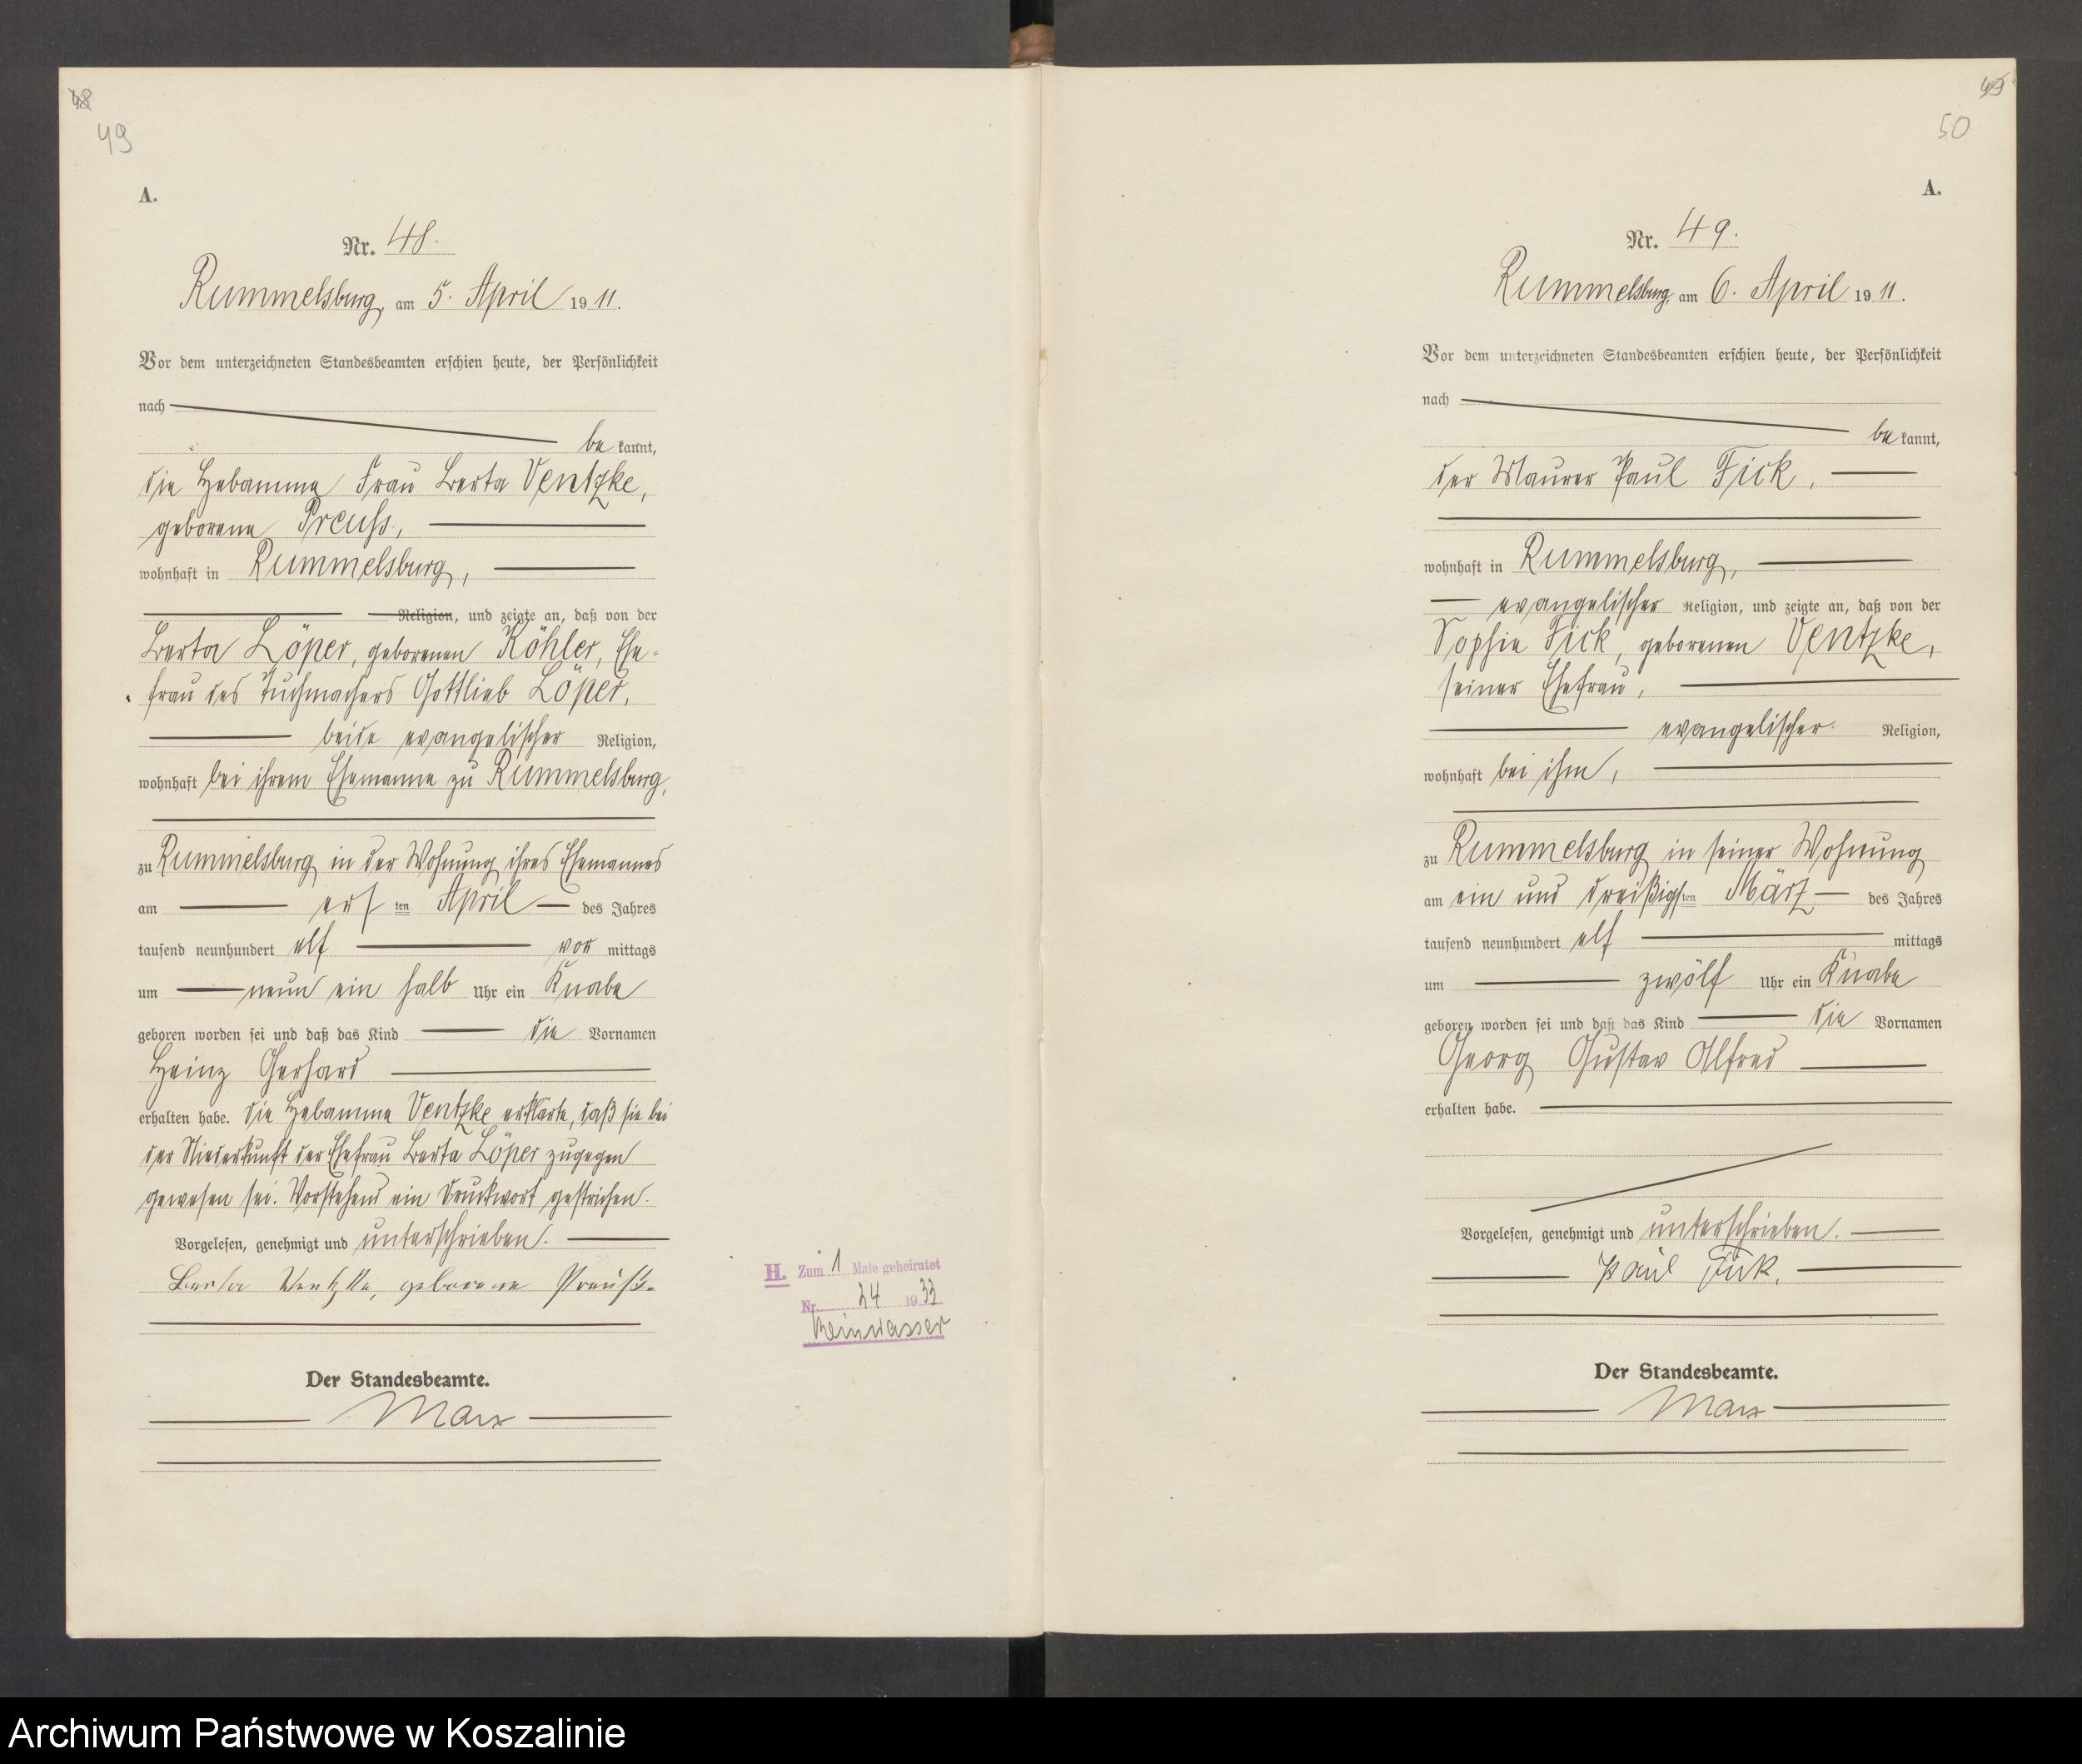 48
49
A.
Nr. 48.
Rummelsburg, am 5. April 1911.
Vor dem unterzeichneten Standesbeamten erschien heute, der Persönlichkeit
nach
be kannt,
die Hebamme Frau Berta Ventzke,
geborene Preuss,
wohnhaft in Rummelsburg,
Religion, und zeigte an, daß von der
Berta Löper, geborenen Köhler, Ehe-
frau des Tuchmachers Gottlieb Löper,
beide evangelischer Religion,
wohnhaft bei ihrem Ehemanne zu Rummelsburg,
zu Rummelsburg in der Wohnung ihres Ehemannes
am ersten April des Jahres
tausend neunhundert elf vor mittags
um neun ein halb Uhr ein Knabe
geboren worden sei und daß das Kind die Vornamen
Heinz Gerhard
erhalten habe. Die Hebamme Ventzke erklärte, daß sie bei
der Niederkunft der Ehefrau Berta Löper zugegen
gewesen sei. Vorstehend ein Druckwort gestrichen.
Vorgelesen, genehmigt und unterschrieben.
Berta Ventzke, geborene Preuß.
Der Standesbeamte.
Marx
H. Zum 1 Male geheiratet
Nr. 24 1933
Reinwasser
49
50
A.
Nr. 49.
Rummelsburg, am 6. April 1911.
Vor dem unterzeichneten Standesbeamten erschien heute, der Persönlichkeit
nach
be kannt,
der Maurer Paul Fick,
wohnhaft in Rummelsburg,
evangelischer Religion, und zeigte an, daß von der
Sophie Fick, geborenen Ventzke,
seiner Ehefrau,
evangelischer Religion,
wohnhaft bei ihm,
zu Rummelsburg in seiner Wohnung
am ein und dreißigsten März des Jahres
tausend neunhundert elf mittags
um zwölf Uhr ein Knabe
geboren worden sei und daß das Kind die Vornamen
Georg Gustav Alfred
erhalten habe.
Vorgelesen, genehmigt und unterschrieben.
Paul Fick.
Der Standesbeamte.
Marx
Archiwum Państwowe w Koszalinie